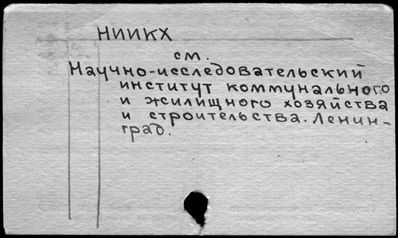 НИИКХ
см.
Научно-исследовательский
институт коммунального
и жилищного хозяйства
и строительства. Ленин-
град.